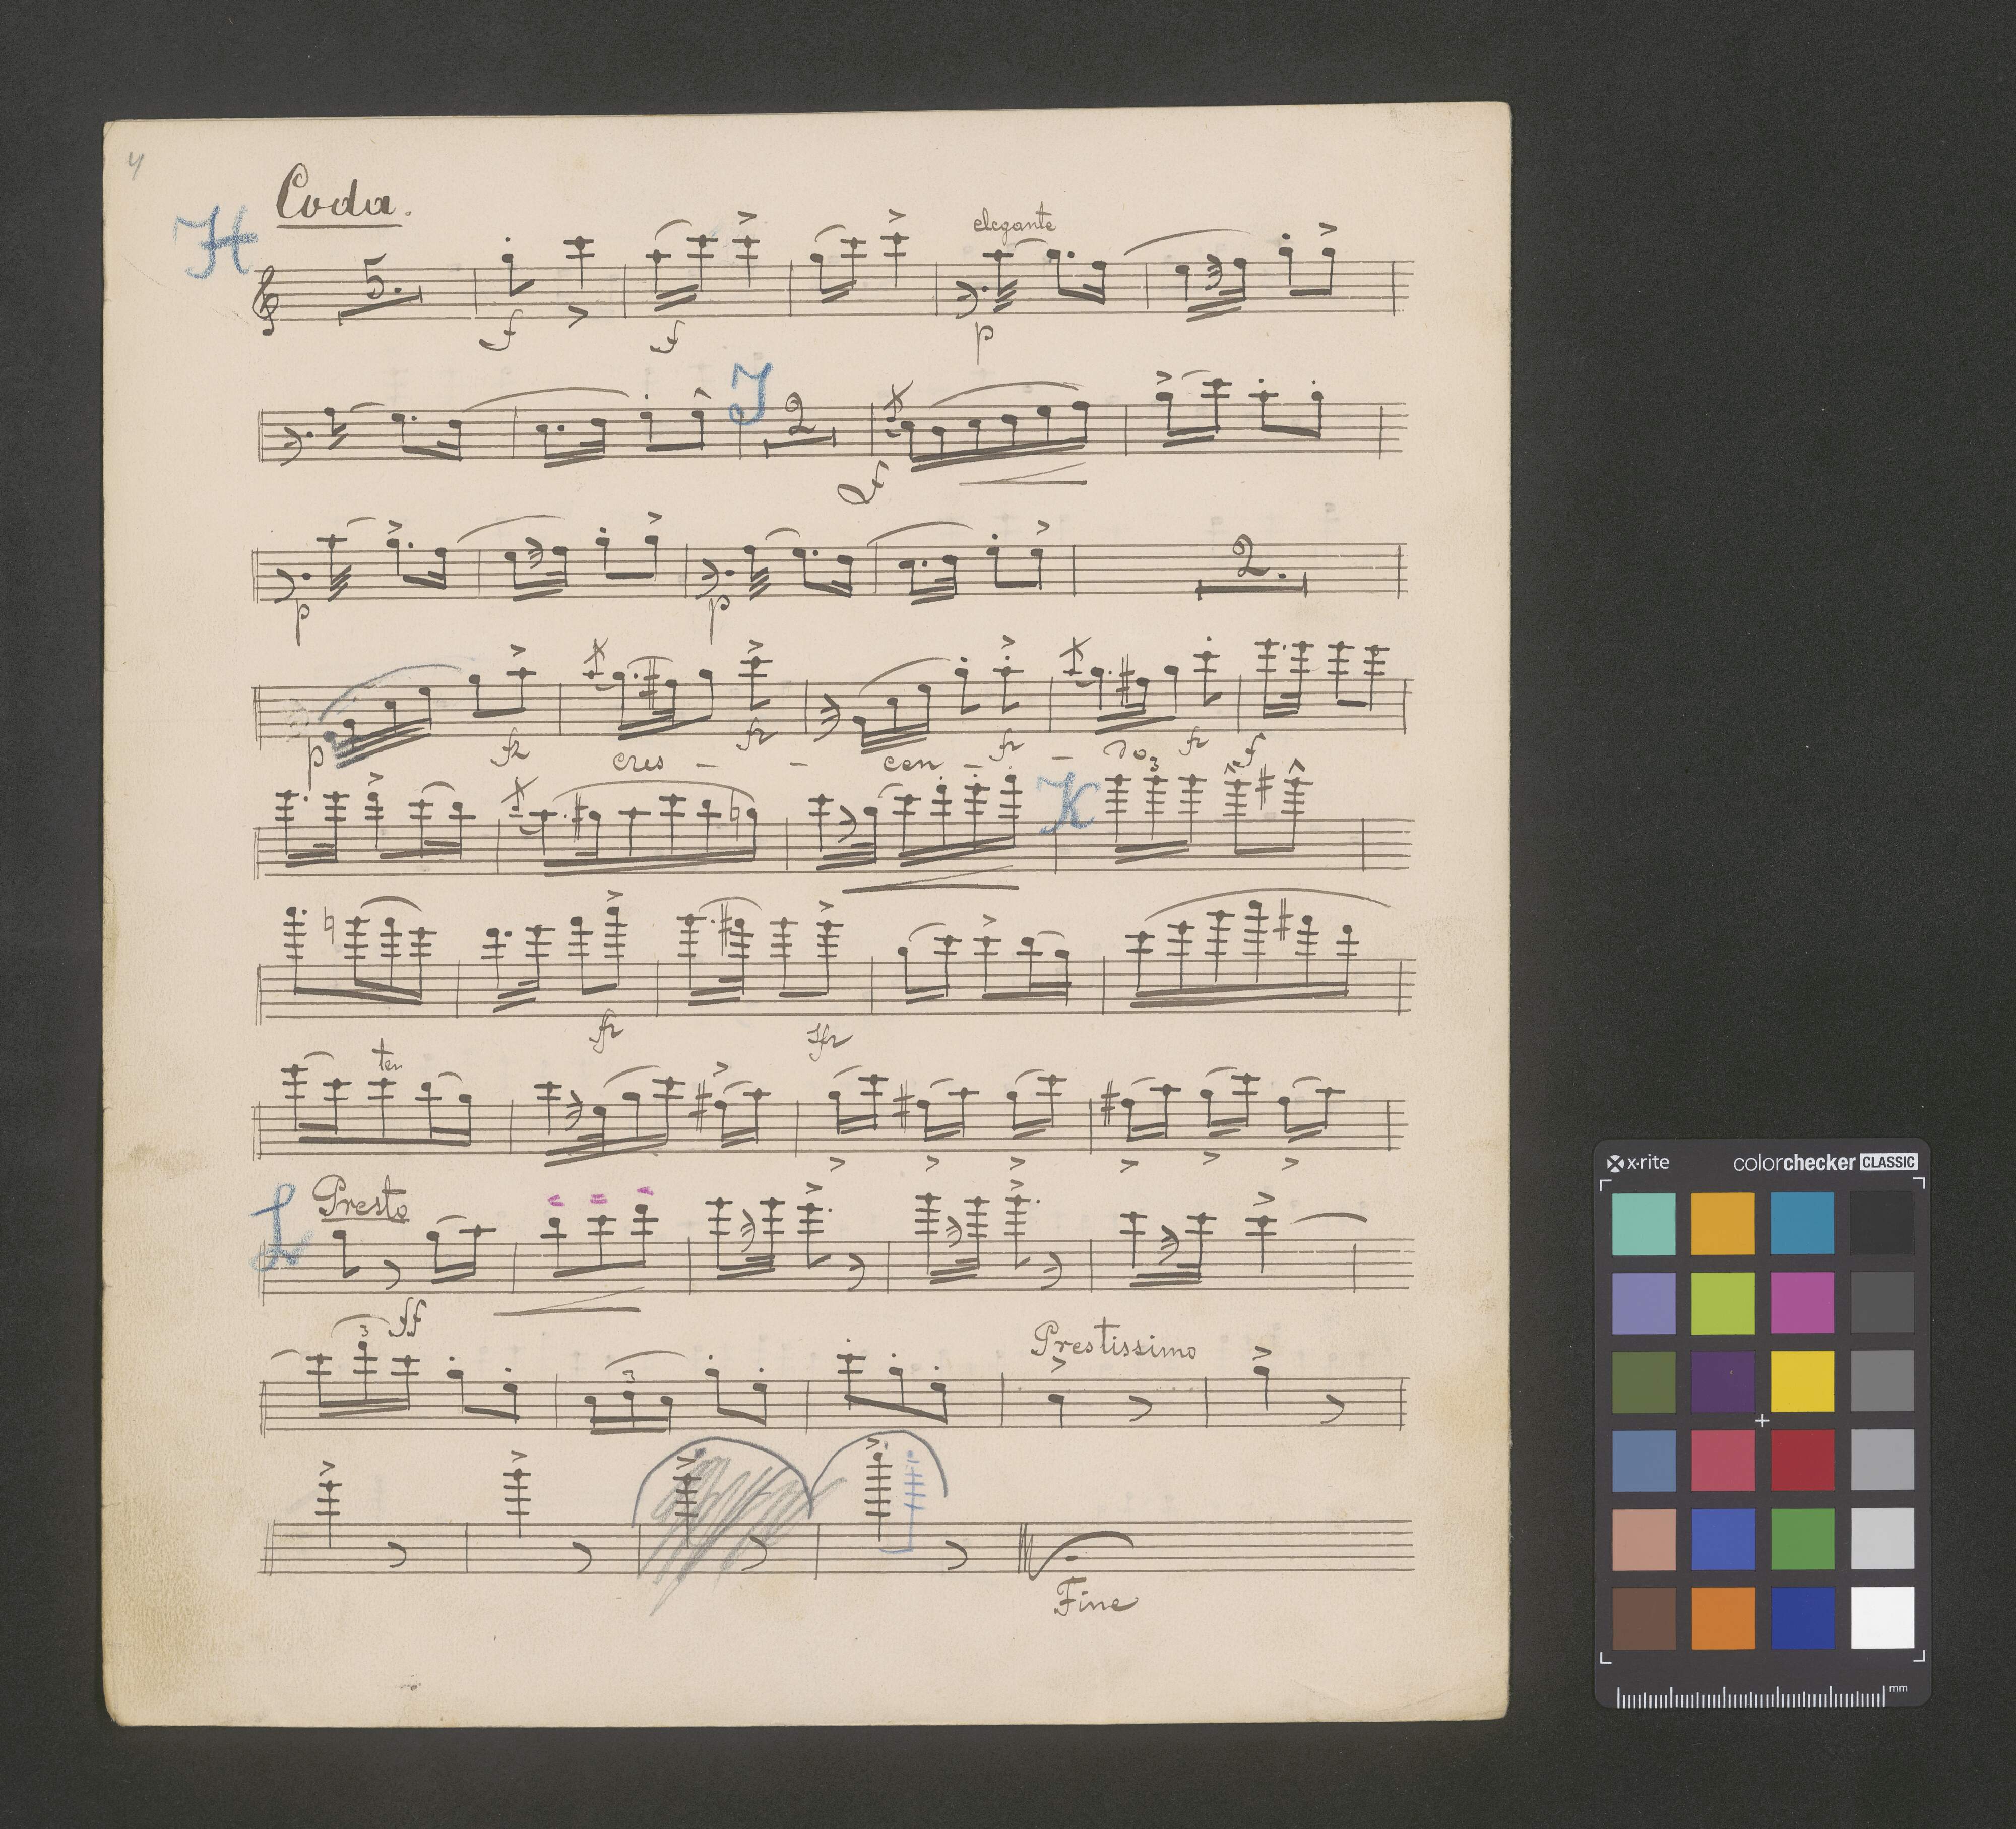 4
Coda.
H
5.
elegante
f
f
p
J
2
p
p
2.
p
fz
cres - - cen - - do
fz
fz
fz
f
3
K
fz
sfz
ten
L
Presto
ff
3
3
Prestissimo
Fine
x·rite
colorchecker CLASSIC
mm